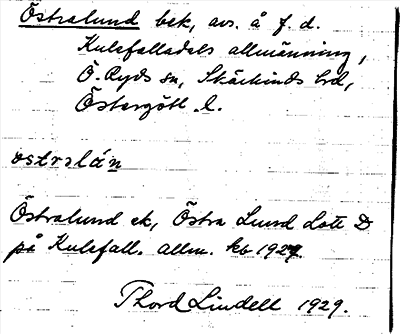 Östralund bek, avs. å f. d.
Kulsfalladels allmänning,
Ö. Ryds sn, Skärkinds hd,
Östergötl. l.
östrəlán
Östralund ek, Östra Lund Lott D
på Kulsfall. allm. kb 1927.
Thord Lindell 1929.